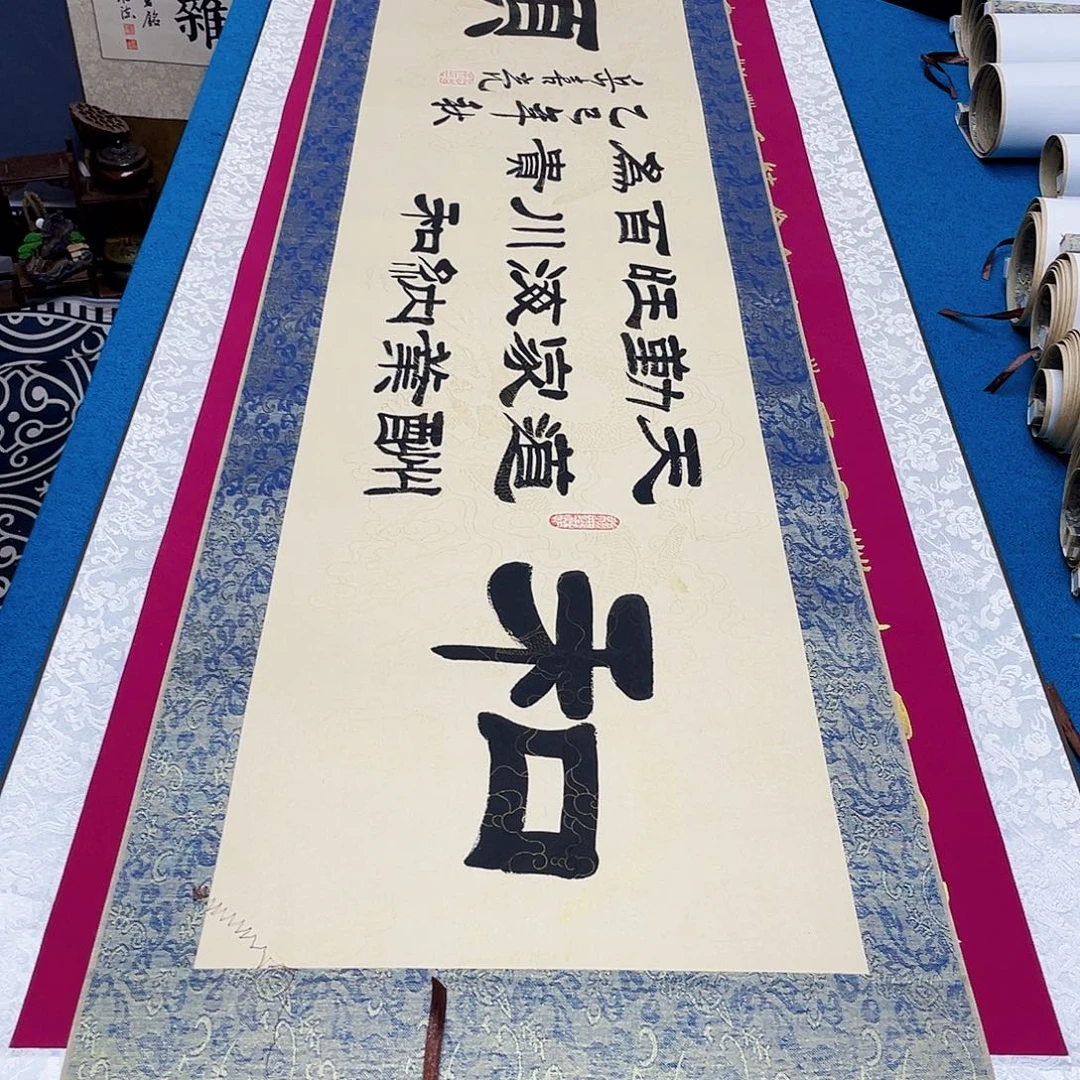 和
天道酬
勤家業
旺海納
百川和
為貴
乙巳年秋
雜
銘